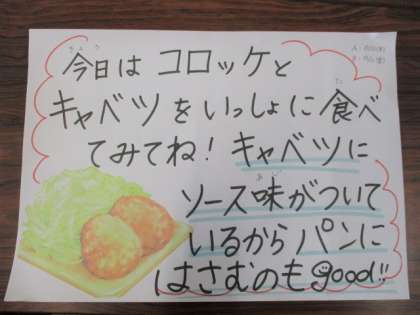 今日は コロッケと
キャベツをいっしょに食べ
てみてね！キャベツに
ソース味がついて
いるからパンに
はさむのもgood!!